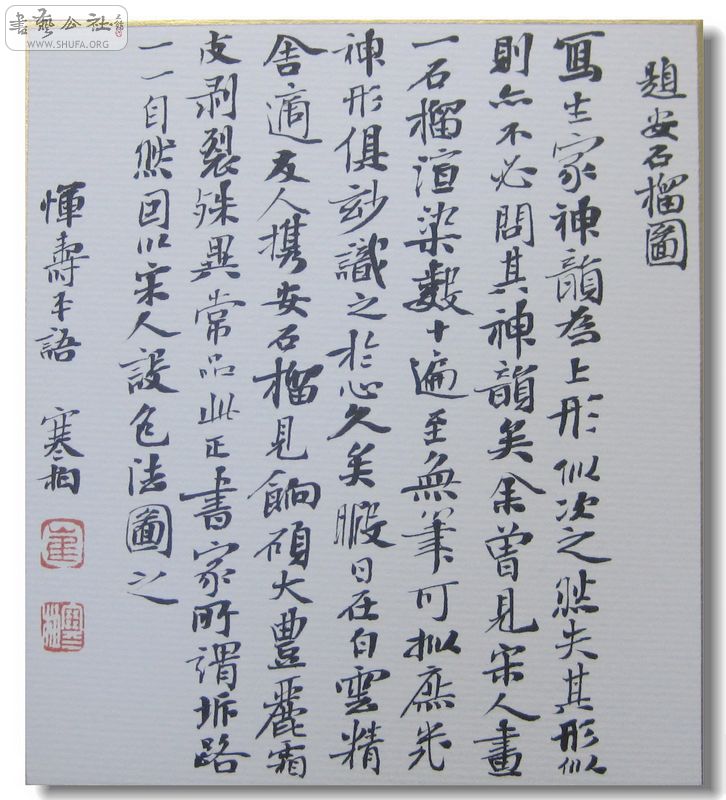 題安石榴圖
寫生家神韻為上形似次之然失其形似
則亦不必問其神韻矣余曾見宋人畫
一石榴渲染數十遍至無筆可擬庶幾
神形俱玅識之於心久矣暇日在白雲精
舍適友人携安石榴見餉碩大豊麗霜
皮剥裂殊異常品此正書家所謂坼路
一一自然因以宋人設色法圖之
惲壽平語 寒柏
書藝公社
WWW.SHUFA.ORG